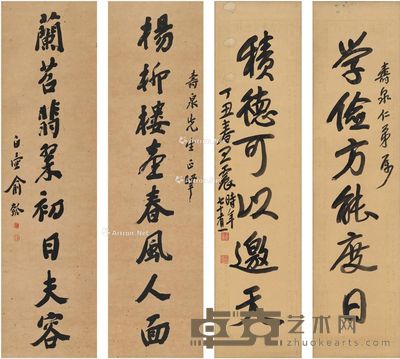 壽泉仁弟屬
學儉方能度日
積德可以邀天
丁丑春王震時年
七十有一
壽泉先生正
楊柳樓臺春風人面
蘭苕翡翠初日夫容
Artron.Net
Artron.Net
卓克艺术网
www.zhuokearts.com